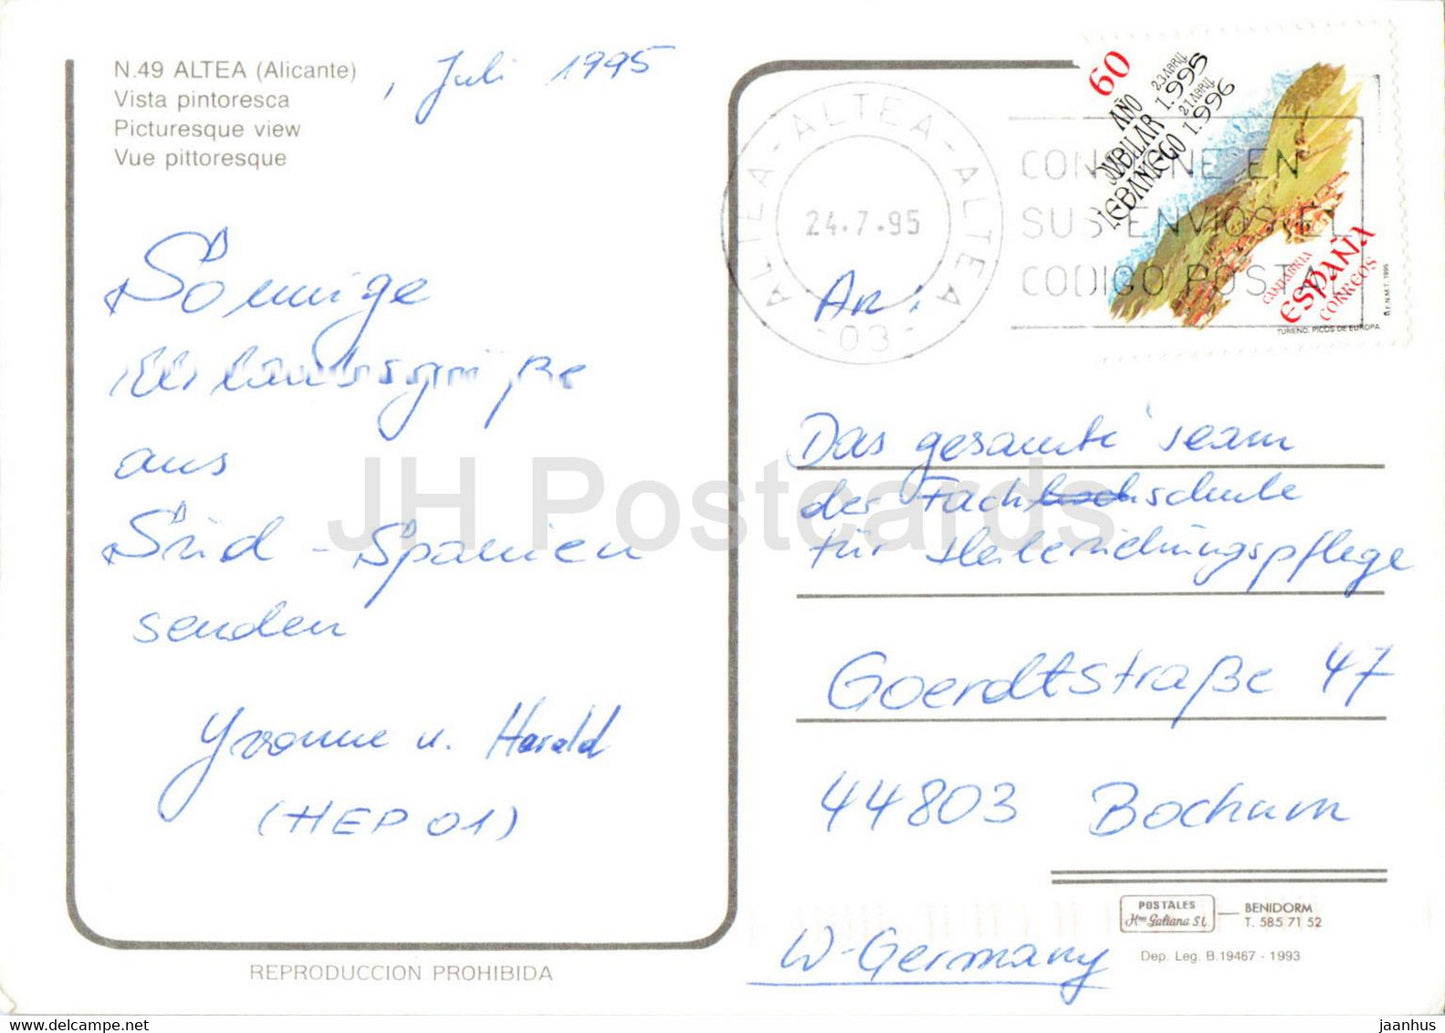 N.49 ALTEA (Alicante)
Vista pintoresca
Picturesque view
Vue pittoresque
, Juli 1995
Sonnige
Urlaubsgrüße
aus
Süd - Spanien
senden
Yvonne u. Harald
(HEP 01)
REPRODUCCION PROHIBIDA
ALTEA - ALTEA - ALTEA
24.7.95
- 03 -
CONSIGNE EN
SUS ENVIOS EL
CODIGO POSTAL
60
AÑO
JUBILAR
LEBANIEGO
23 ABRIL
1.995
21 ABRIL
1.996
CANTABRIA
ESPAÑA
CORREOS
TURIENO. PICOS DE EUROPA
F.N.M.T. 1995
An:
Das gesamte Team
der Fachschule
für Heilerziehungspflege
Goerdtstraße 47
44803 Bochum
W-Germany
POSTALES
Hnos Galiana S.L.
BENIDORM
T. 585 71 52
Dep. Leg. B.19467 - 1993
JH Postcards
jaanhus